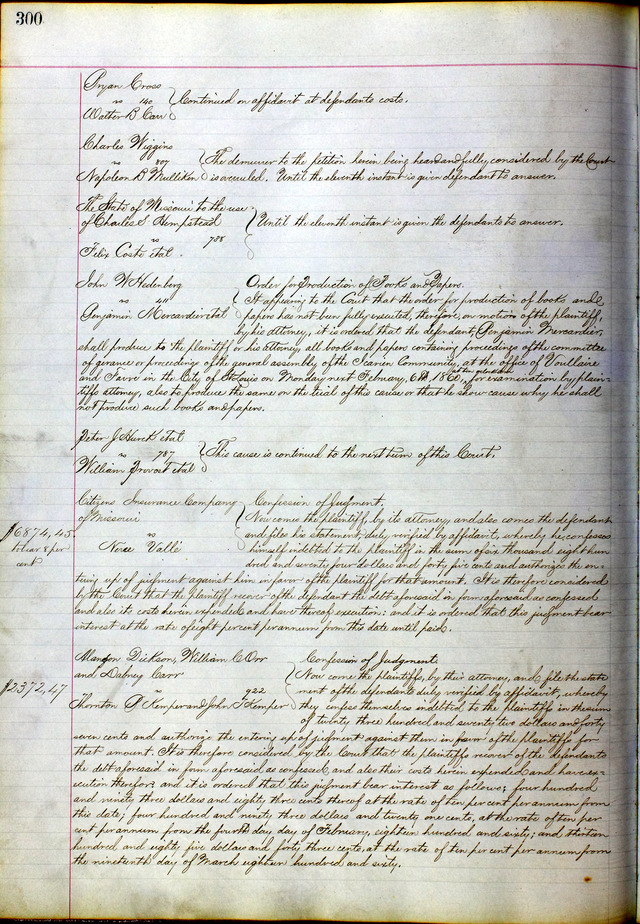 300
Bryan Cross
vs 140 Continued on affidavit at defendants costs.
Walter B Carr
Charles Wiggins
vs 807 The demurrer to the petition herein being heard and fully considered by the Court
Napoleon B Mulliken is overruled. Until the eleventh instant is given defendant to answer.
The State of Missouri to the use
of Charles S Hempstead Until the eleventh instant is given the defendants to answer.
vs 788
Felix Coste etal
John W Hedenberg Order for Production of Books and Papers.
vs 411 It appearing to the Court that the order for production of books and
Benjamin Mercardier etal papers has not been fully executed, therefore, on motion of the plaintiff,
by his attorney, it is ordered that the defendant, Benjamin Mercardier,
shall produce to the plaintiff or his attorney, all books and papers containing proceedings of the committee
of gerance or proceedings of the general assembly of the Icarian Community, at the office of Voullaire
and Favre in the City of St Louis on Monday next February, 6th 1860, for examination by plain-
tiffs attorney, also to produce the same on the trial of this cause or that he show cause why he shall
not produce such books and papers.
Peter J Hurck etal
vs 787 This cause is continued to the next term of this Court.
William Provost etal
Citizens Insurance Company Confession of Judgment.
of Missouri Now comes the plaintiff, by its attorney and also comes the defendant
$6874,45 vs and files his statement, duly verified by affidavit, whereby he confesses
to bear 8 per Neree Vallé himself indebted to the plaintiff in the sum of six thousand eight hun
cent dred and seventy four dollars and forty five cents and authorize the en-
tering up of judgment against him in favor of the plaintiff for that amount. It is therefore considered
by the Court that the plaintiff recover of the defendant the debt aforesaid in form aforesaid as confessed
and also its costs herein expended, and have thereof execution: and it is ordered that this judgment bear
interest at the rate of eight per cent per annum from this date until paid.
Dickson, William C Orr Confession of Judgment.
and Dabney Carr Now come the plaintiffs, by their attorney, and file the state
$2372,47 vs 922 ment of the defendants duly verified by affidavit, whereby
Thornton P Kemper and John S Kemper they confess themselves indebted to the plaintiffs in the sum
of twenty three hundred and seventy two dollars and forty
seven cents and authorize the entering up of judgment against them in favor of the plaintiffs for
that amount. It is therefore considered by the Court that the plaintiffs recover of the defendants
the debt aforesaid in form aforesaid as confessed, and also their costs herein expended and have exe-
cution therefor: and it is ordered that this judgment bear interest as follows; four hundred
and ninety three dollars and eighty three cents thereof at the rate of ten per cent per annum from
this date; four hundred and ninety three dollars and twenty one cents, at the rate of ten per
cent per annum from the fourth day day of February, eighteen hundred and sixty; and thirteen
hundred and eighty five dollars and forty three cents, at the rate of ten per cent per annum from
the nineteenth day of March eighteen hundred and sixty.